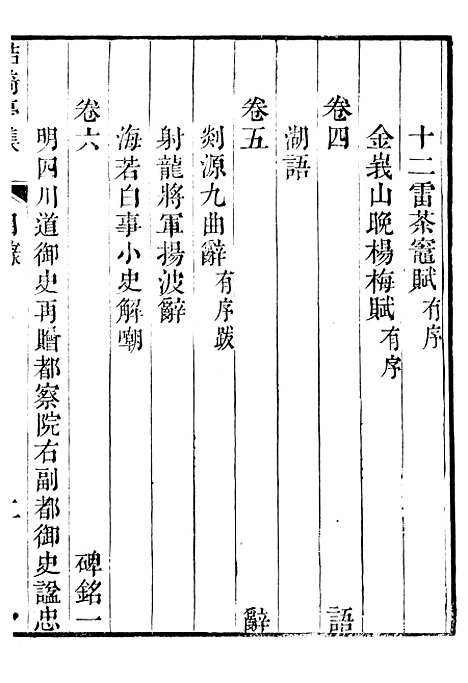 十二雷茶竈賦有序
金峩山晚楊梅賦有序
卷四 語
湖語
卷五 辭
剡源九曲辭有序跋
射龍將軍揚波辭
海若白事小史解嘲
卷六 碑銘一
明四川道御史再贈都察院右副都御史諡忠
鮚埼亭集 目錄 二